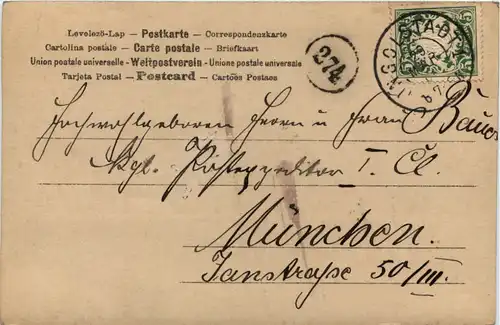 Levelező-Lap — Postkarte — Correspondenzkarte
Cartolina postale — Carte postale — Briefkaart
Union postale universelle — Weltpostverein — Unione postale universale
Tarjeta Postal — Postcard — Cartões Postaes
274
INGOLSTADT
Hochwohlgeboren Herrn u Frau Bauer
Kgl. Postexpeditor I. Cl.
München.
Isarstraße 50/III.